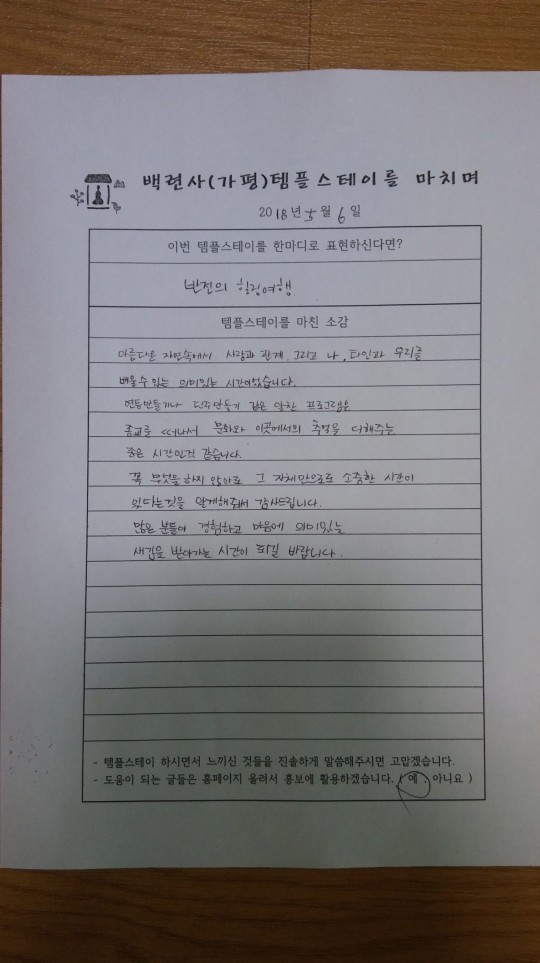 백련사(가평)템플스테이를 마치며
2018년 5월 6일
이번 템플스테이를 한마디로 표현하신다면?
반전의 힐링여행
템플스테이를 마친 소감
아름다운 자연속에서 사람과 관계, 그리고 나, 타인과 우리를
배울수 있는 의미있는 시간이었습니다.
연등만들기나 단주만들기 같은 알찬 프로그램은
종교를 떠나서 문화와 이곳에서의 추억을 더해주는
좋은 시간인것 같습니다.
꼭 무엇을 하지 않아도 그 자체만으로도 소중한 시간이
있다는것을 알게해줘서 감사드립니다.
많은 분들이 경험하고 마음에 의미있는
새김을 받아가는 시간이 되길 바랍니다.
- 템플스테이 하시면서 느끼신 것들을 진솔하게 말씀해주시면 고맙겠습니다.
- 도움이 되는 글들은 홈페이지 올려서 홍보에 활용하겠습니다. ( 예 , 아니요 )